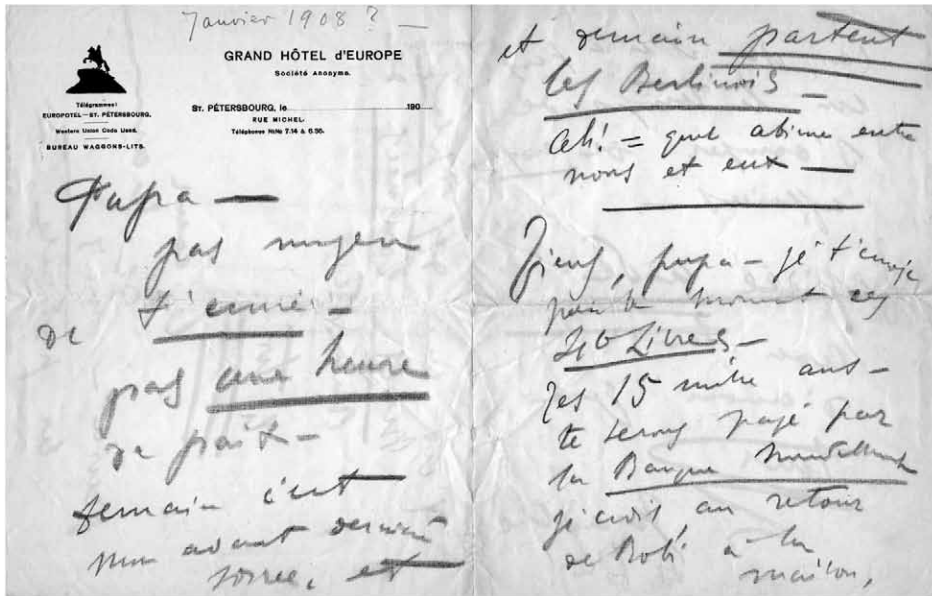 Janvier 1908 ? —
GRAND HÔTEL d'EUROPE
Société Anonyme.
Télégrammes:
EUROPOTEL—ST. PÉTERSBOURG.
Western Union Code Used.
BUREAU WAGGONS-LITS.
ST. PÉTERSBOURG, le 190
RUE MICHEL.
Téléphones №№ 7.14 & 6.36.
Papa —
pas moyen
de t'écrire —
pas une heure
de paix —
demain c'est
mon avant dernière
soirée, et
et demain partent
les Berlinois —
Ah! = quel abime entre
nous et eux —
Tiens, papa — je t'envoie
pour le moment ces
Livres —
les 15 mille
te seront payé par
la Banque
je crois, au retour
de à la
maison,